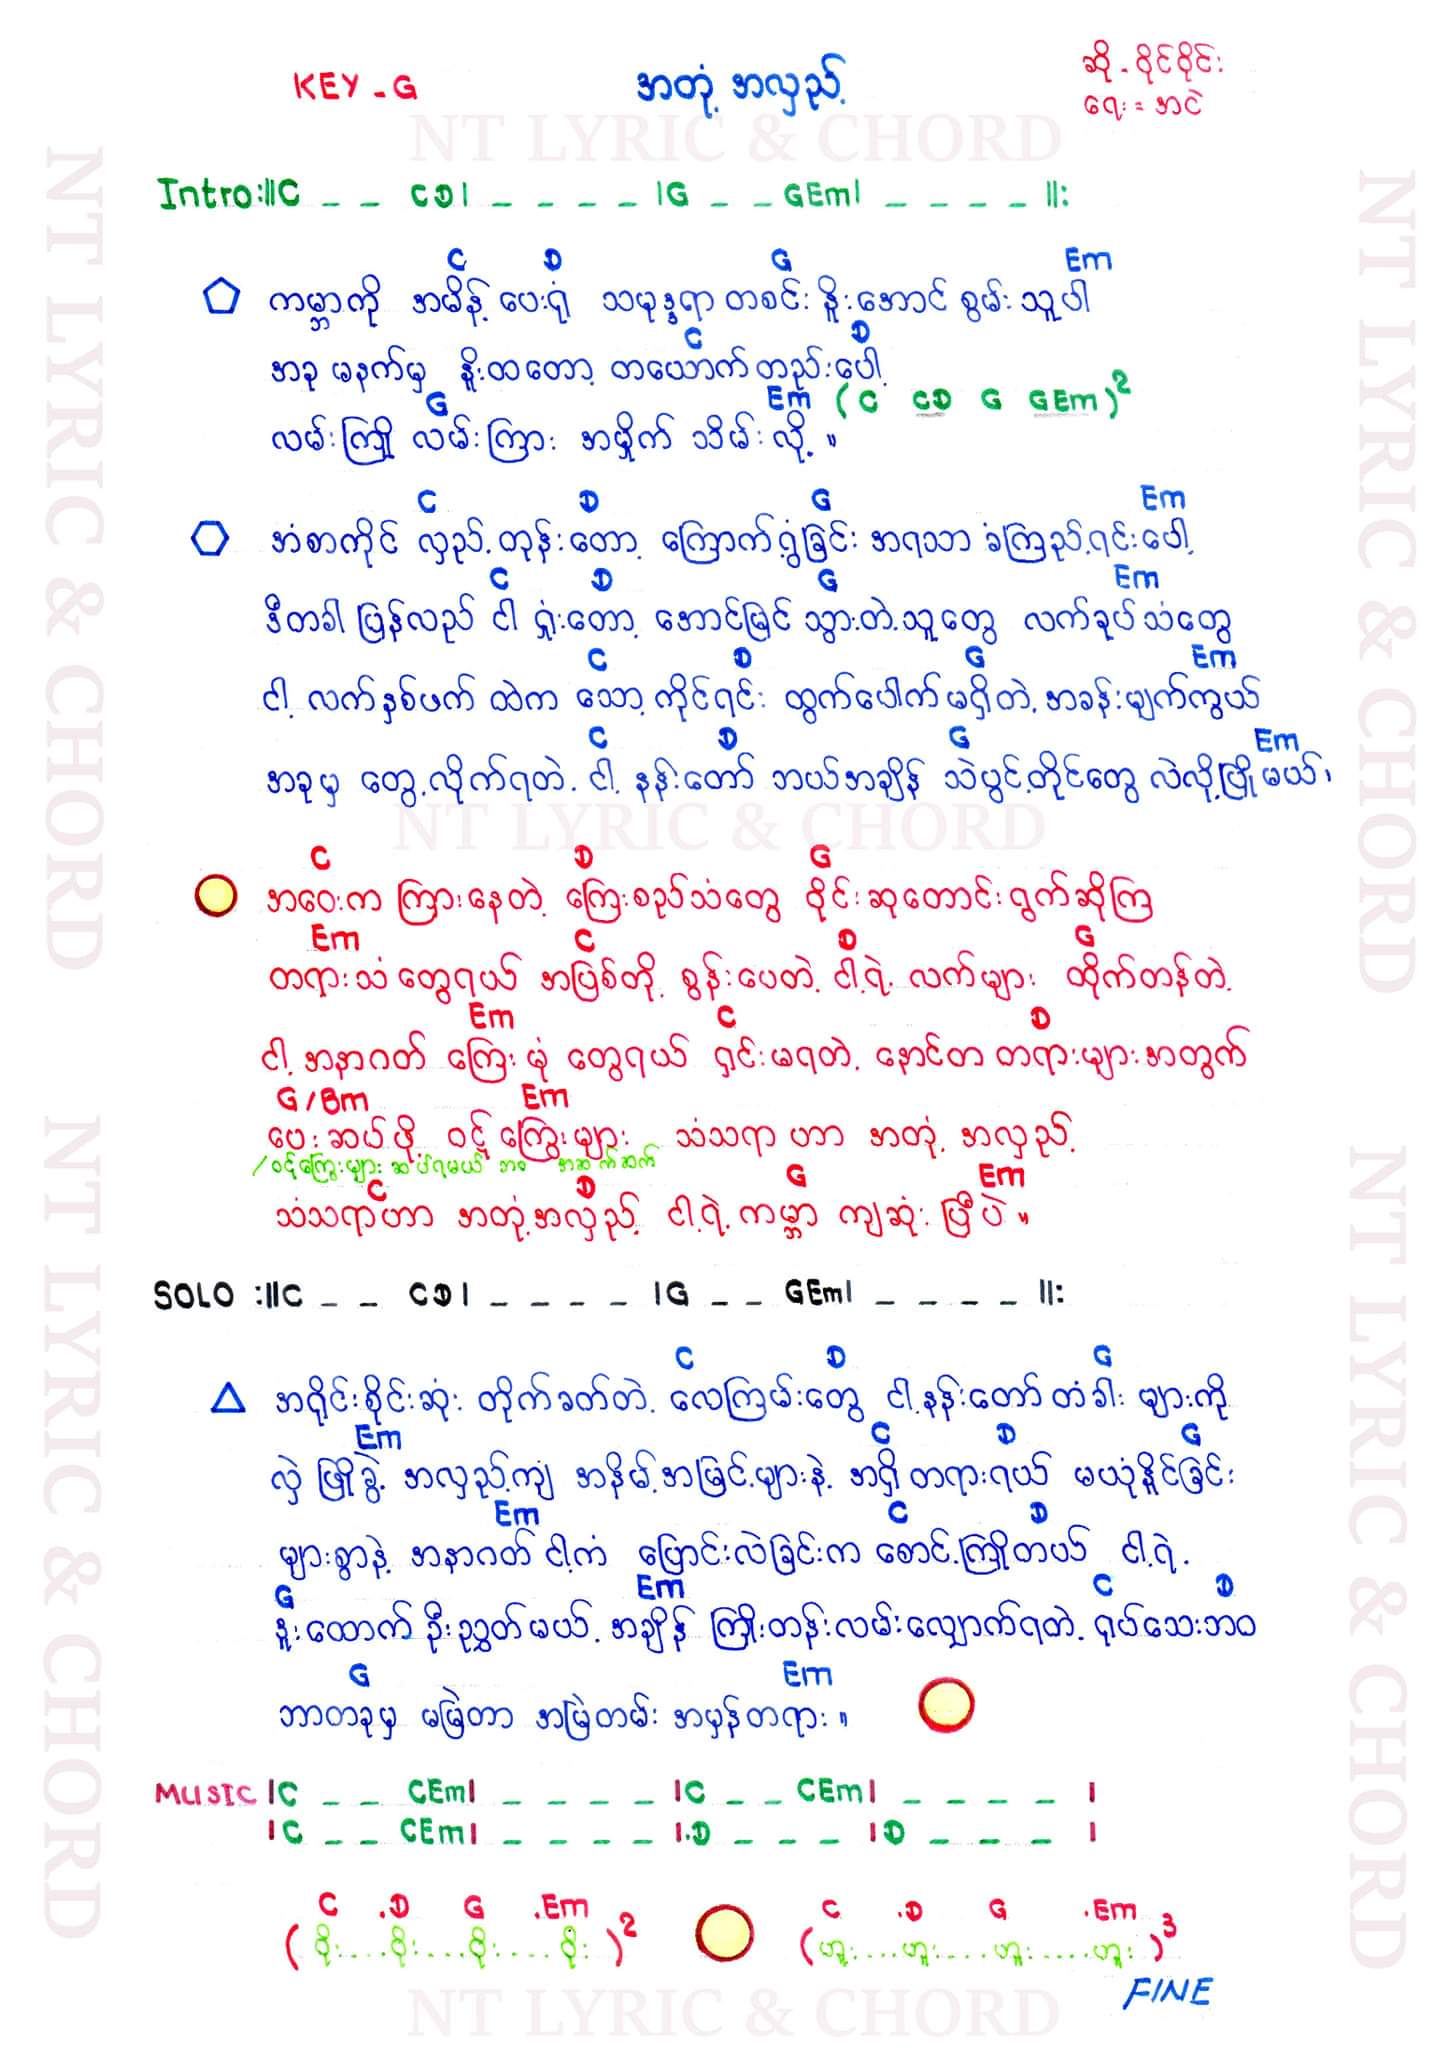 KEY - G
အတုံ့ အလှည့်
ဆို - ဝိုင်ဝိုင်း
ရေး = အငဲ
NT LYRIC & CHORD
Intro :||C _ _ CD| _ _ _ _ |G _ _ GEm| _ _ _ _ ||:
C D G Em
ကမ္ဘာကို အမိန့် ပေးရုံ သမုဒ္ဒရာ တစင်း နိူးအောင် စွမ်း သူပါ
C D
အခု မနက်မှ နိူးထတော့ တယောက် တည်းပေါ့
G Em (C CD G GEm)2
လမ်းကြို လမ်းကြား အမှိုက် သိမ်း လို့ ။
C D G Em
အံစာကိုင် လှည့် တုန်းတော့ ကြောက်ရွံ့ခြင်း အရသာ ခံကြည့်ရင်းပေါ့
C D G Em
ဒီတခါ ပြန်လည် ငါ ရှုံးတော့ အောင်မြင် သွားတဲ့သူတွေ လက်ခုပ်သံတွေ
C D G Em
ငါ့ လက်နှစ်ဖက် ထဲက သော့ ကိုင်ရင်း ထွက်ပေါက်မရှိတဲ့ အခန်းမျက်ကွယ်
C D G Em
အခုမှ တွေ့လိုက်ရတဲ့ ငါ့ နန်းတော် ဘယ်အချိန် သဲပွင့်တိုင်တွေ လဲလို့ပြိုမယ်၊
NT LYRIC & CHORD
C D G
အဝေးက ကြားနေတဲ့ ကြေးစည်သံတွေ ဝိုင်းဆုတောင်းရွက်ဆိုကြ
Em C D G
တရားသံတွေရယ် အပြစ်တို့ စွန်းပေတဲ့ ငါ့ရဲ့ လက်များ ထိုက်တန်တဲ့
Em C D
ငါ့ အနာဂတ် ကြေးမုံ တွေရယ် ရှင်းမရတဲ့ နောင်တ တရားများအတွက်
G/Bm Em
ပေးဆပ်ဖို့ ဝဋ်ကြွေးများ သံသရာ ဟာ အတုံ့ အလှည့်
/ဝဋ်ကြွေးများ ဆပ်ရမယ် ဘဝ အဆက်ဆက်
C D G Em
သံသရာဟာ အတုံ့အလှည့် ငါ့ရဲ့ ကမ္ဘာ ကျဆုံး ပြီပဲ ။
SOLO :||C _ _ CD| _ _ _ _ |G _ _ GEm| _ _ _ _ ||:
C D G
အရိုင်းစိုင်းဆုံး တိုက်ခတ်တဲ့ လေကြမ်းတွေ ငါ့နန်းတော်တံခါးများကို
Em C D G
လှဲ ဖြိုခွဲ့ အလှည့်ကျ အနိမ့်အမြင့်များနဲ့ အရှိတရားရယ် မယုံနိူင်ခြင်း
Em C D
များစွာနဲ့ အနာဂတ် ငါ့ကံ ပြောင်းလဲခြင်းက စောင့်ကြိုတယ် ငါ့ရဲ့
G Em C D
နူးထောက် ဦးညွှတ်မယ့် အချိန် ကြိုးတန်းလမ်းလျှောက်ရတဲ့ ရုပ်သေးဘဝ
G Em
ဘာတခုမှ မမြဲတာ အမြဲတမ်း အမှန်တရား ။
MUSIC |C _ _ CEm| _ _ _ _ |C _ _ CEm| _ _ _ _ |
|C _ _ CEm| _ _ _ _ |.D _ _ _ |D _ _ _ |
C .D G .Em C .D G .Em
(ဝိုး....ဝိုး....ဝိုး....ဝိုး)2 (ဟူး....ဟူး....ဟူး....ဟူး)3
FINE
NT LYRIC & CHORD
NT LYRIC & CHORD
NT LYRIC & CHORD
NT LYRIC & CHORD
NT LYRIC & CHORD